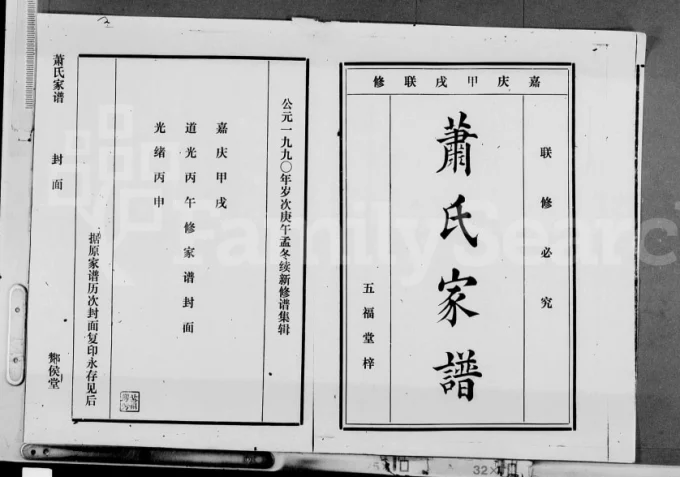 嘉庆甲戌联修
联修必究
蕭氏家譜
五福堂梓
公元一九九〇年岁次庚午孟冬续新修谱集辑
嘉庆甲戌
道光丙午修家谱封面
光绪丙申
据原家谱历次封面复印永存见后
萧氏家谱
封面
酂侯堂
FamilySearch
32×